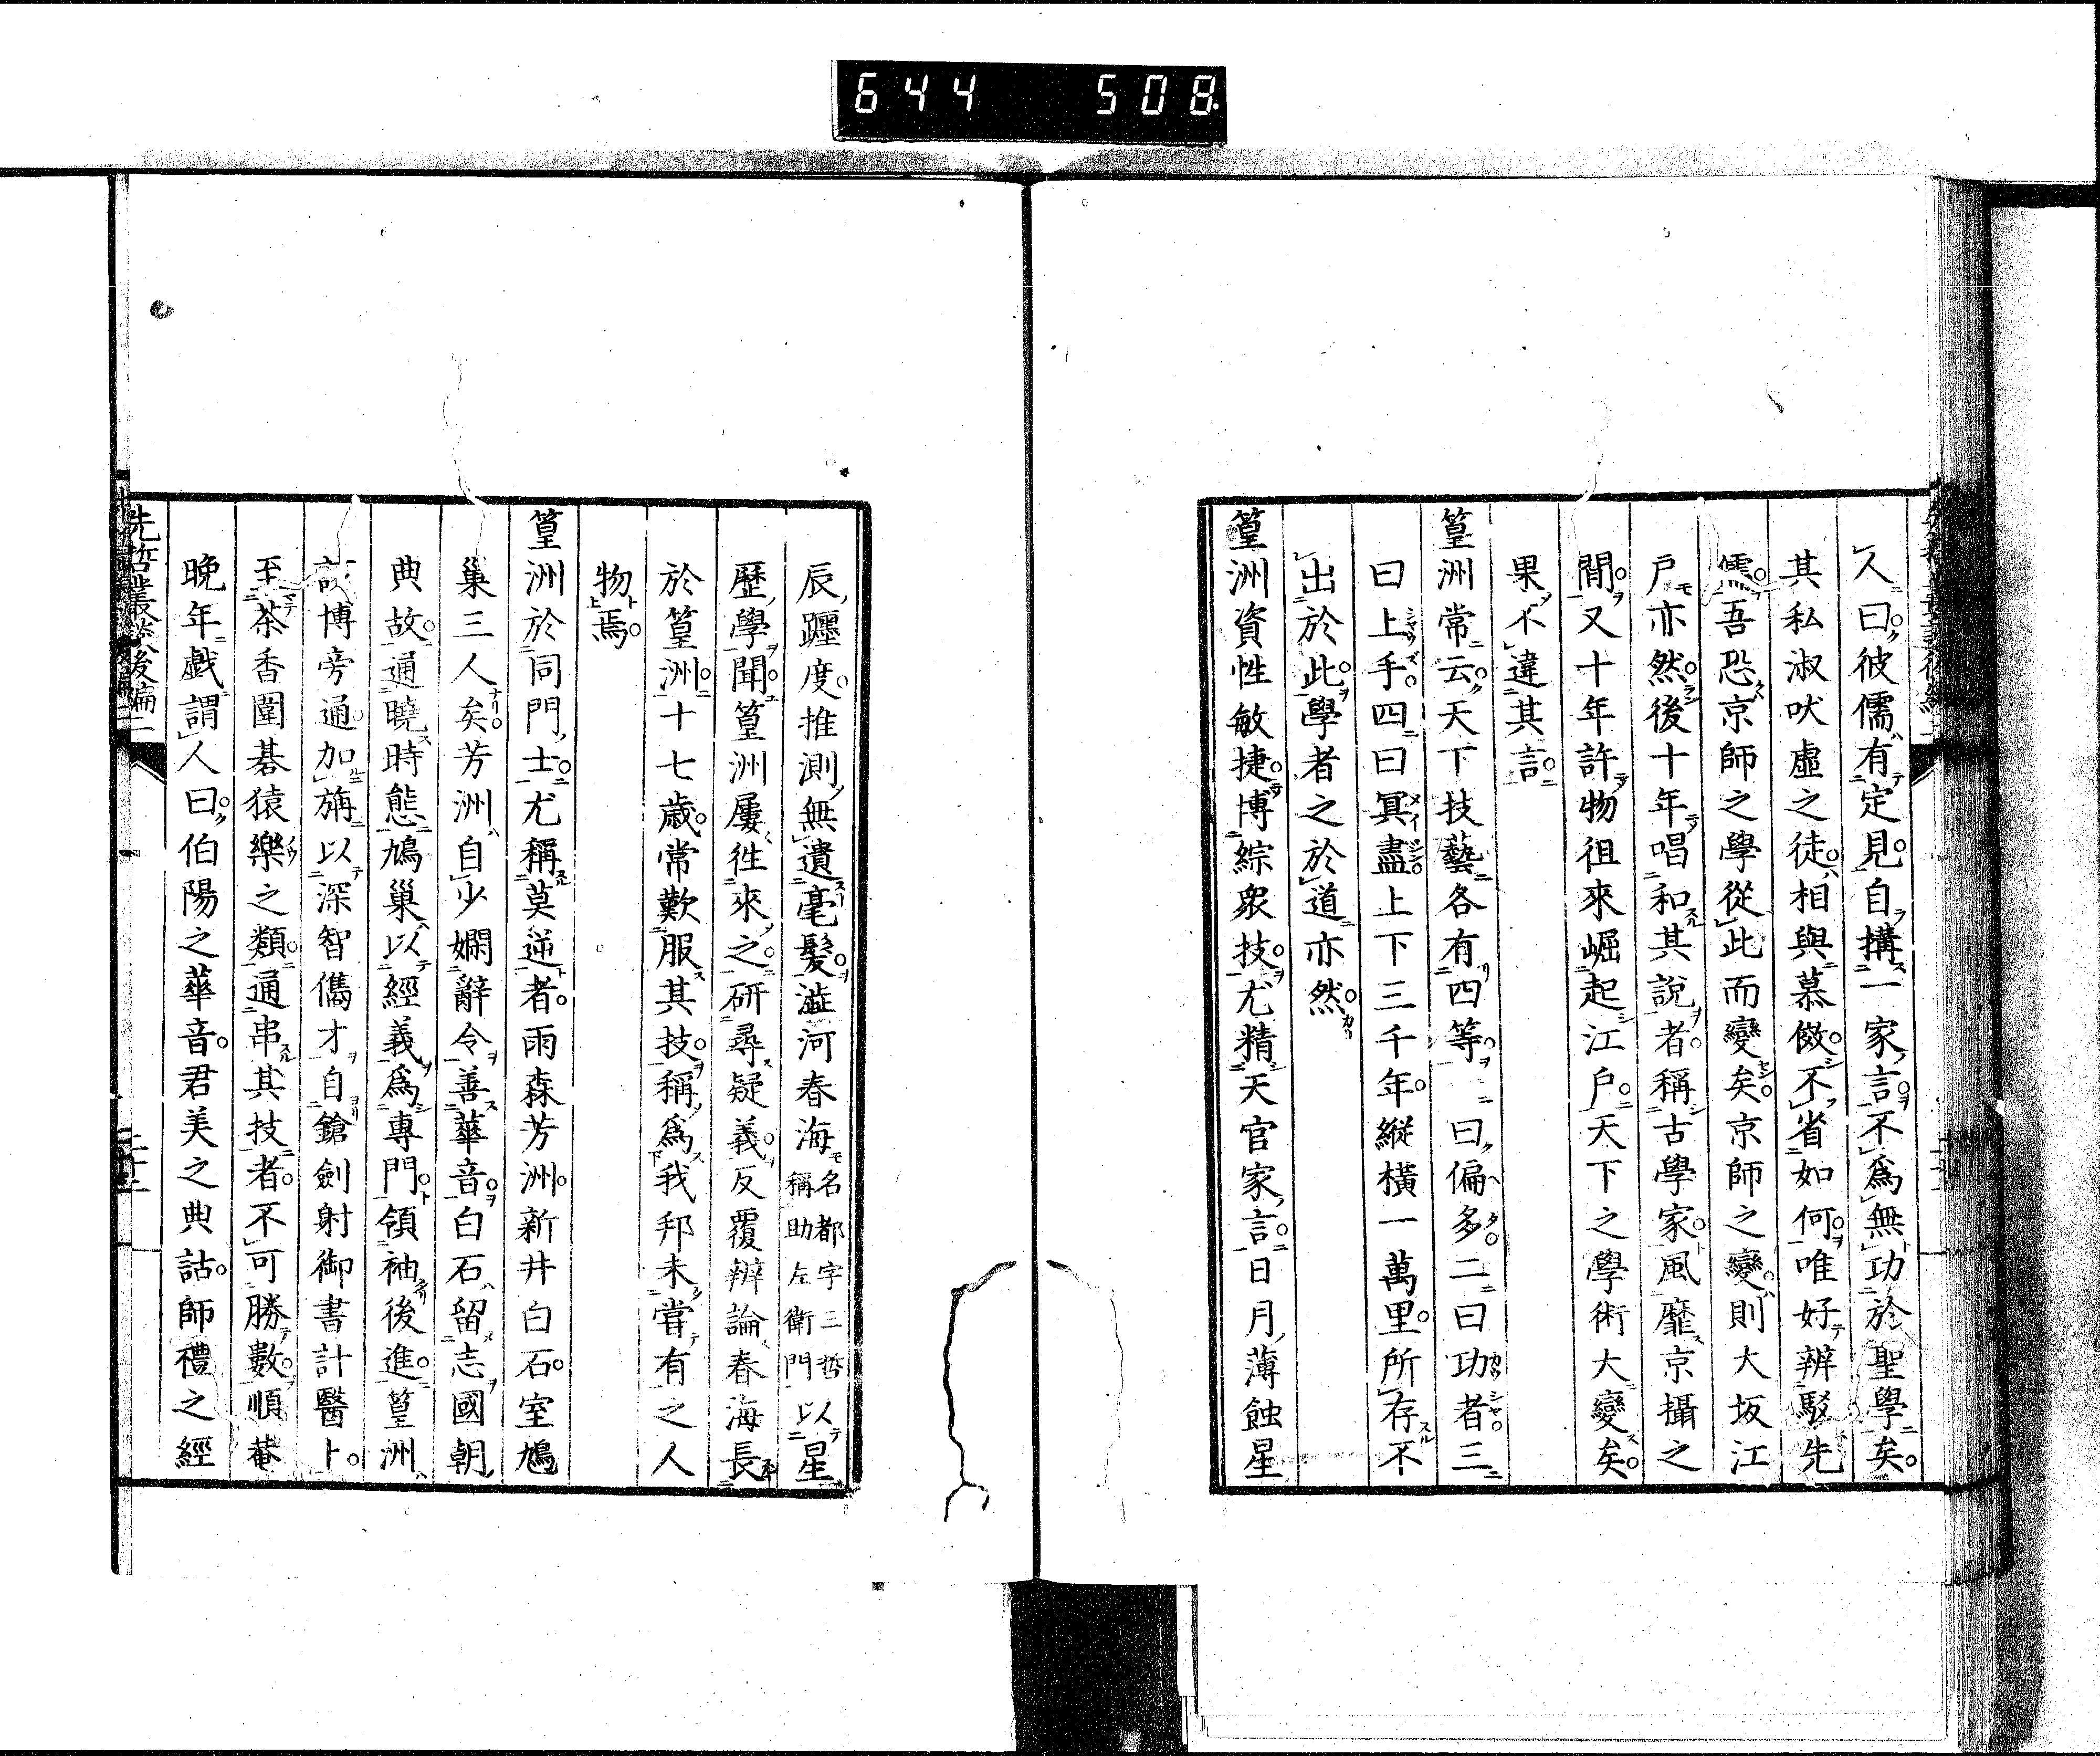 644 508
人曰彼儒有定見自搆一家言不爲無功於聖學矣
其私淑吠虛之徒相與慕倣不省如何唯好辨駁先
儒吾恐京師之學從此而變矣京師之變則大坂江
戶亦然後十年唱和其說者稱古學家風靡京攝之
間又十年許物徂來崛起江戶天下之學術大變矣
果不違其言
篁洲常云天下技藝各有四等一曰偏多二曰功者三
曰上手四曰冥盡上下三千年縱橫一萬里所存不
出於此學者之於道亦然
篁洲資性敏捷博綜衆技尤精天官家言日月薄蝕星
辰躔度推測無遺毫髮澁河春海名都字三哲稱助左衛門以星
歷學聞篁洲屢往來之研尋疑義反覆辨論春海長
於篁洲十七歲常歎服其技稱爲我邦未嘗有之人
物焉
篁洲於同門士尤稱莫逆者雨森芳洲新井白石室鳩
巢三人矣芳洲自少嫻辭令善華音白石留志國朝
典故通曉時態鳩巢以經義爲專門領袖後進篁洲
博旁通加旃以深智儁才自鎗劍射御書計醫卜
至茶香圍碁猿樂之類通串其技者不可勝數順菴
晚年戲謂人曰伯陽之華音君美之典詁師禮之經
先哲叢談後編二